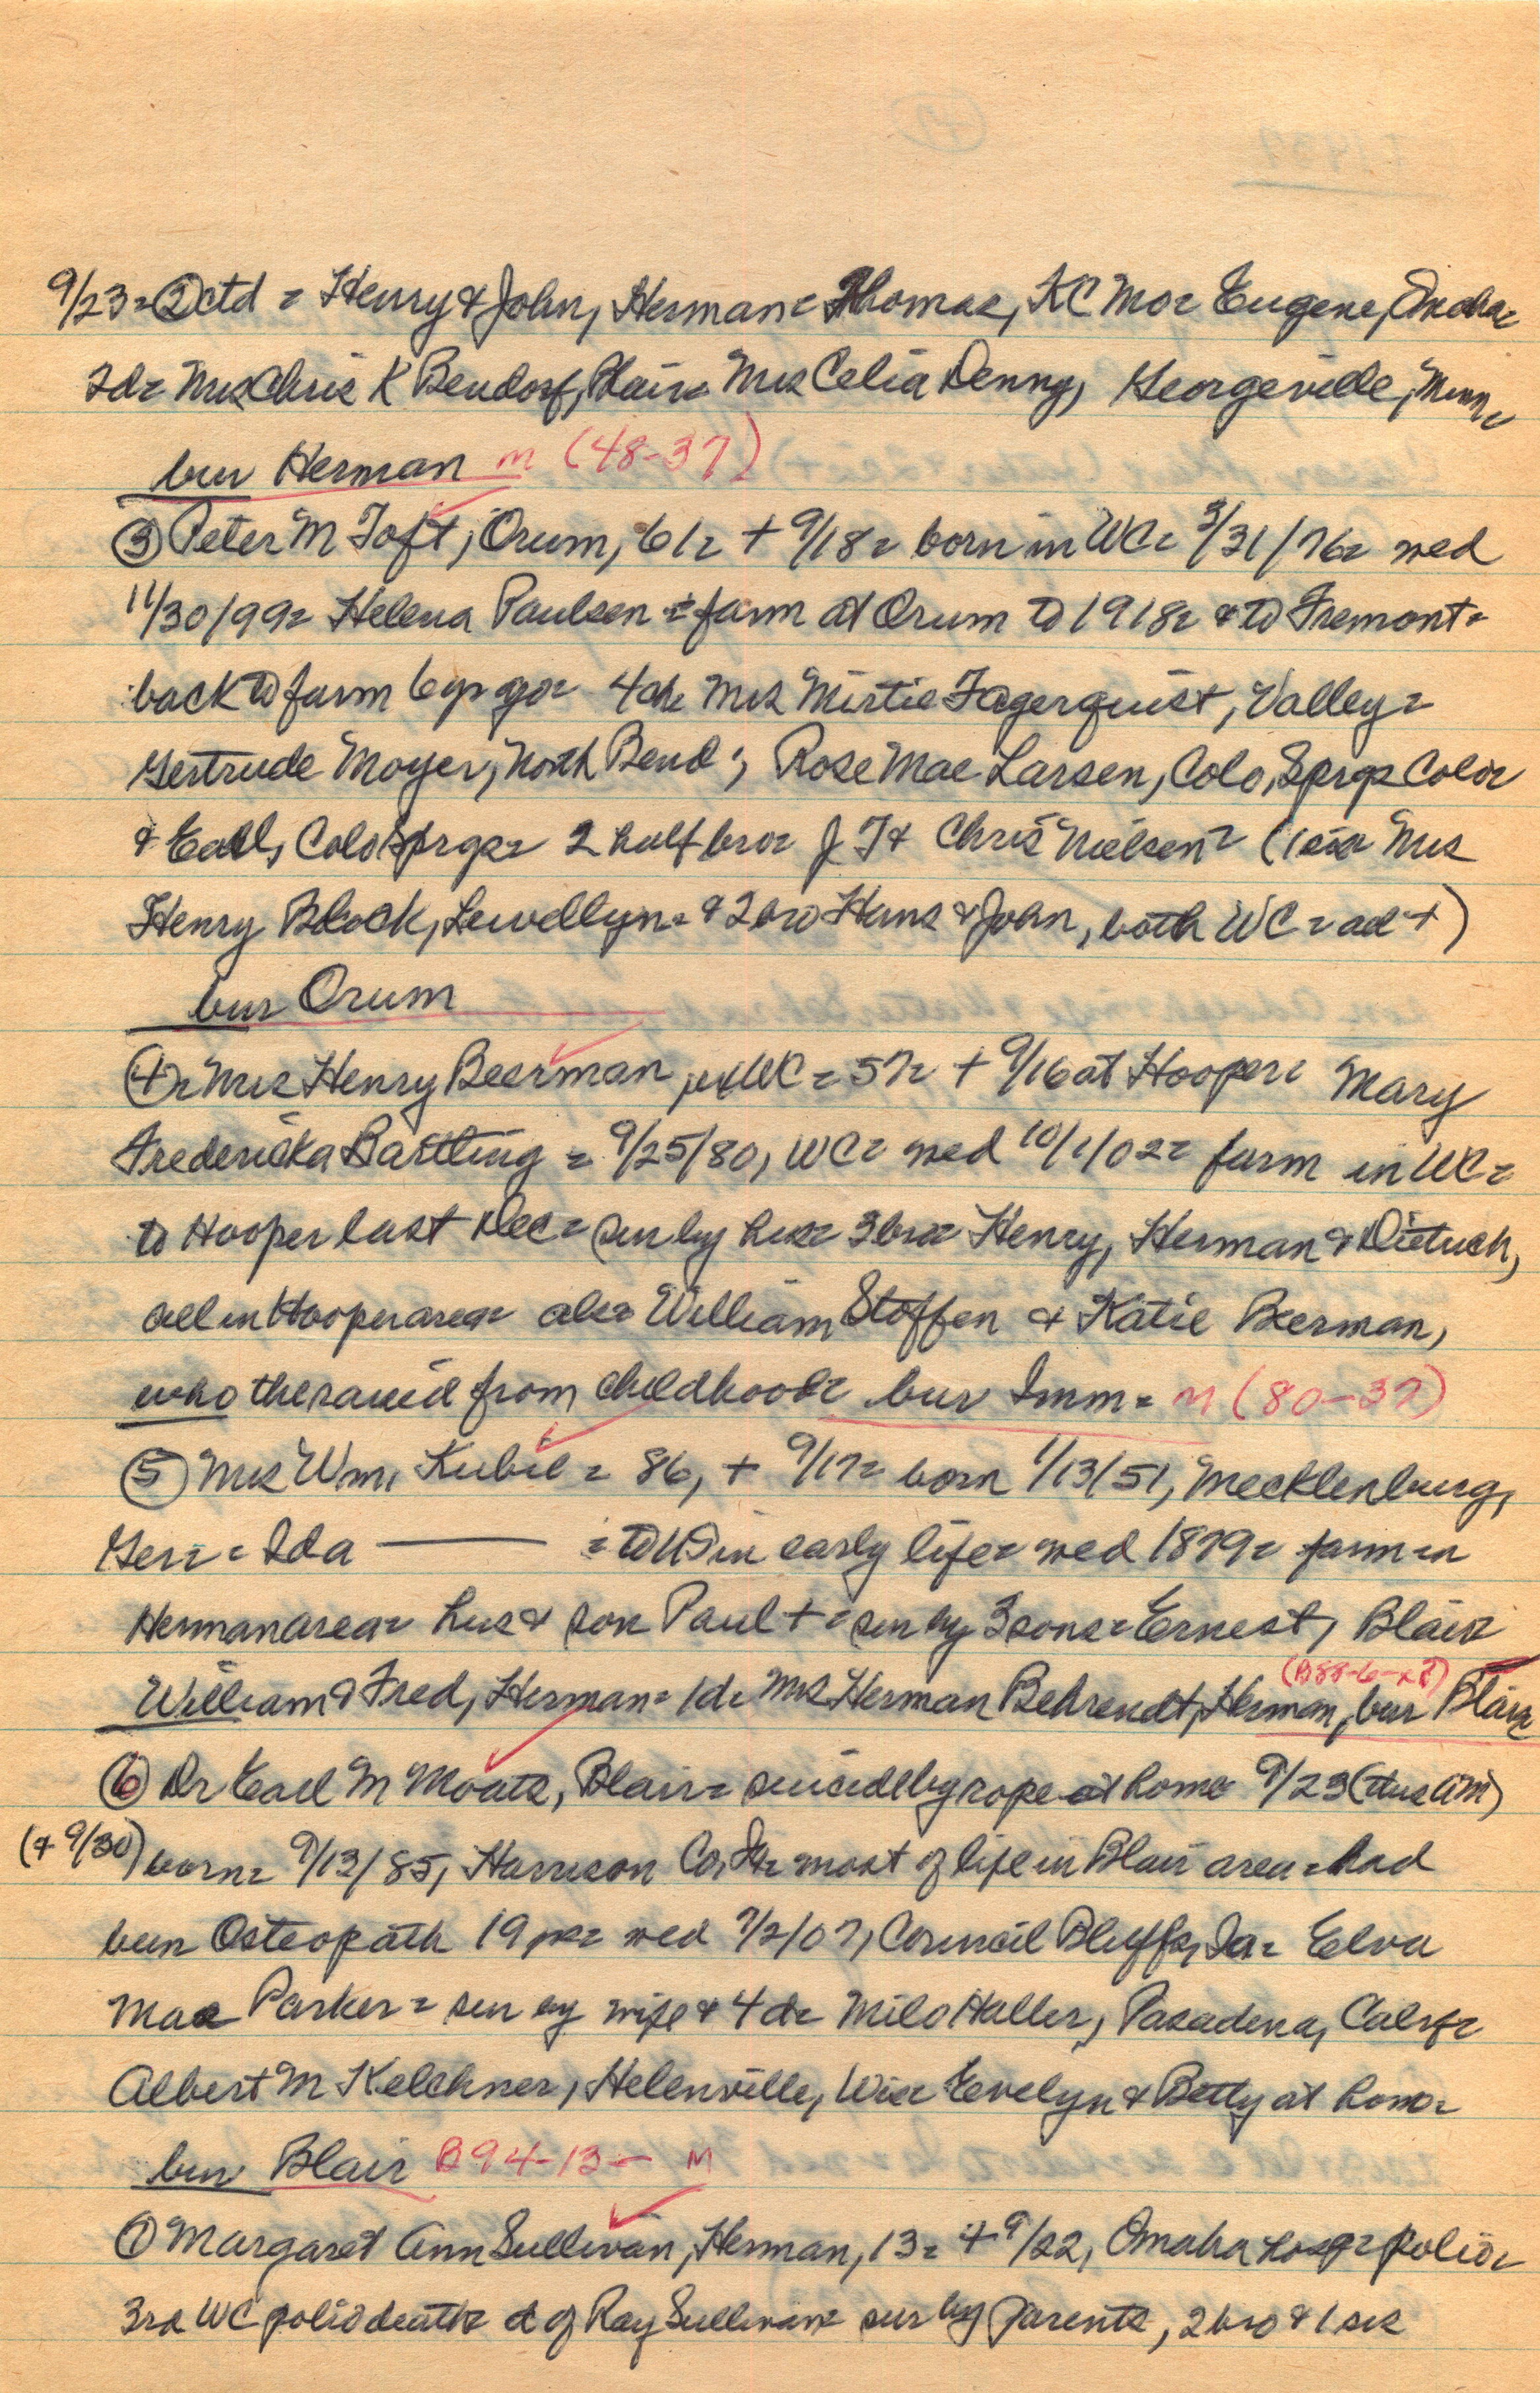 9/23= ② ctd = Henry & John, Herman= Thomas, KC Mo= Eugene, Omaha=
2d= Mrs Chris K Bendorf, Blair= Mrs Celia Denny, Georgeville, Minn=
bur Herman m (48-37)
③ Peter M Toft, Orum, 61= + 9/18= born in WC= 3/31/76= wed
11/30/99= Helena Paulsen = farm at Orum to 1918= & to Fremont=
back to farm 6 yr ago= 4ch= Mrs Mirtie Fagerquist, Valley=
Gertrude Moyer, North Bend; Rose Mae Larsen, Colo, Sprgs Colo=
& Earl, Colo Sprgs= 2 half bro= J T & Chris Nielsen= (1 sis Mrs
Henry Block, Lewellyn= & 2 bro Hans & John, both WC = all +)
bur Orum
④= Mrs Henry Beerman, WC = 57= + 9/16 at Hooper= Mary
Fredericka Bartling = 9/25/80, WC= wed 10/1/02= farm in WC=
to Hooper last Dec= sur by hus= 3 bro= Henry, Herman & Dietrich,
all in Hooper area= also William Stoffen & Katie Beerman,
who they raised from childhood= bur Imm= m (80-37)
⑤ Mrs Wm, Kubie = 86, + 9/17= born 1/13/51, Mecklenburg,
Ger= = Ida —— = to US in early life= wed 1879= farm in
Herman area= hus & son Paul + = sur by 3 sons= Ernest, Blair
William & Fred, Herman= 1d= Mrs Herman Behrendt, Herman, bur Blair
⑥ Dr Earl M Moats, Blair= suicide by rope at home 9/23 (Thus AM)
(+ 9/30) born= 9/13/85, Harrison Co, Ia= most of life in Blair area= had
been Osteopath 19 yrs= wed 7/2/07, Council Bluffs, Ia= Elva
Mae Parker= sur by wife & 4 d= Milo Haller, Pasadena, Calif=
Albert M Kelchner, Helenville, Wis= Evelyn & Betty at home=
bur Blair B94-13- M
⑦ Margaret Ann Sullivan, Herman, 13= + 9/22, Omaha hosp= polio=
3rd WC polio death= d of Ray Sullivan= sur by parents, 2 bro & 1 sis